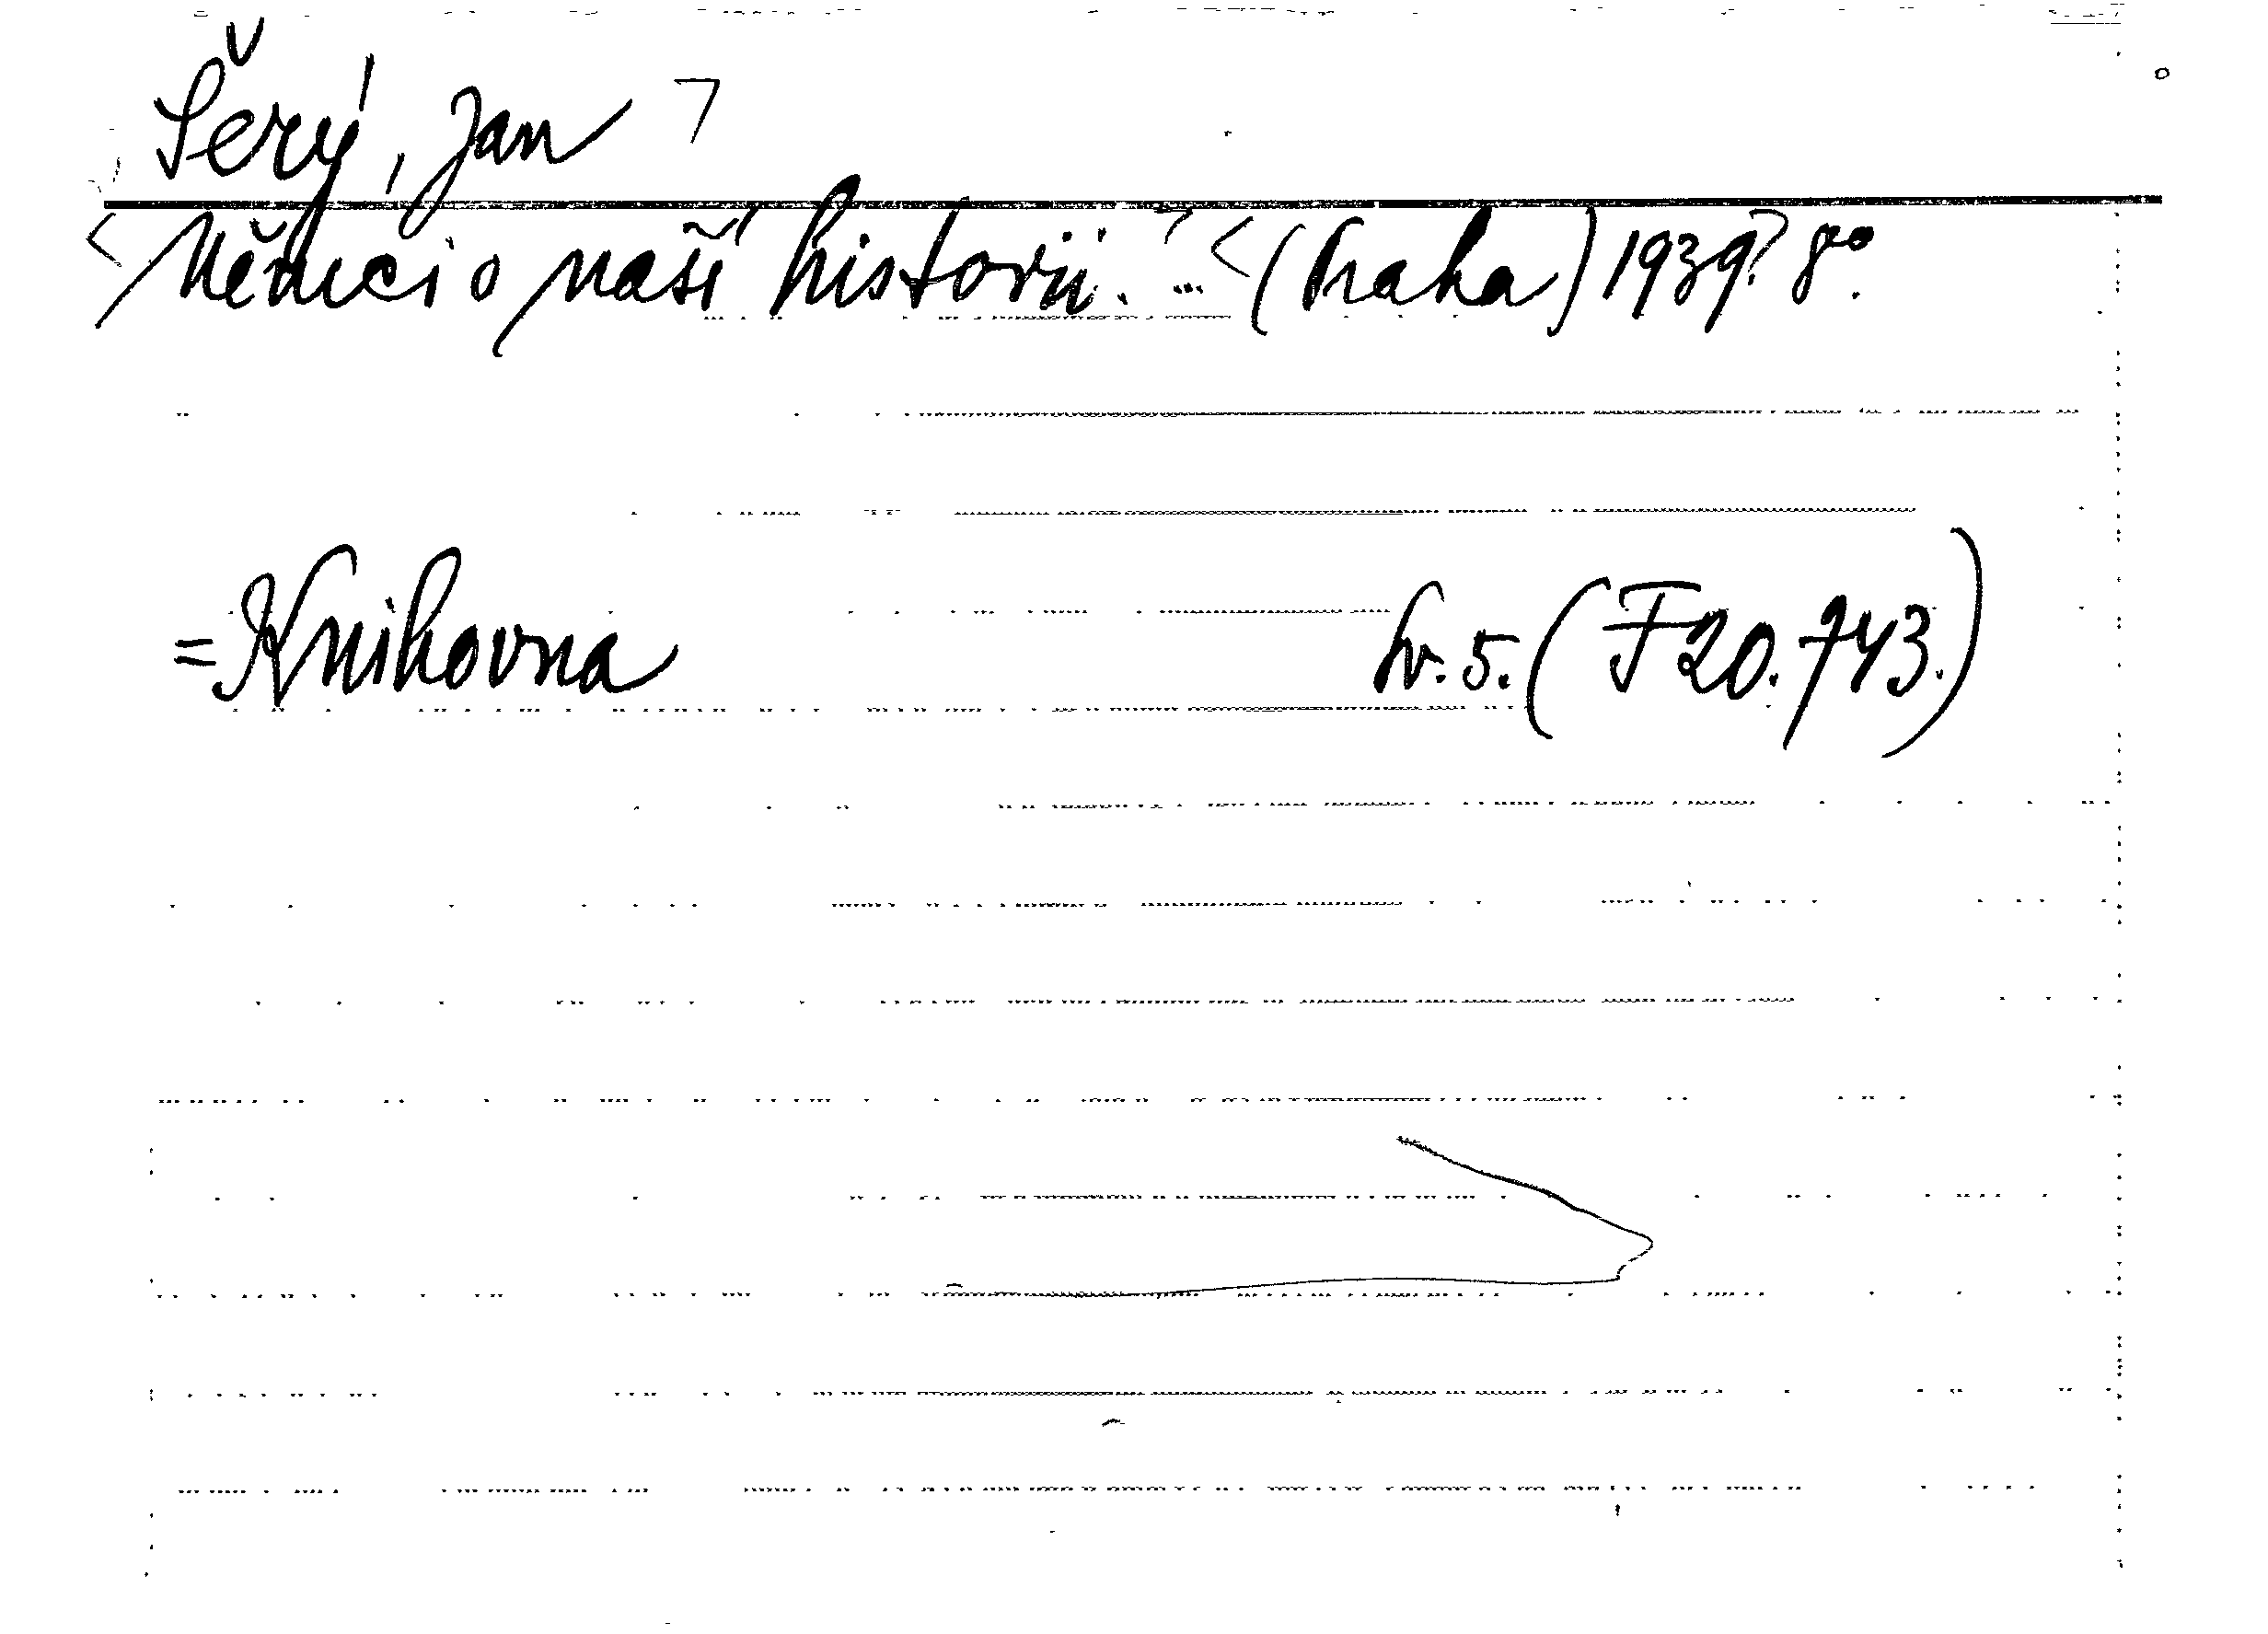 Šerý, Jan
Němci o naší historii. ... (Praha) 1939? 8°.
= Knihovna sv. 5. (F 20.743.)